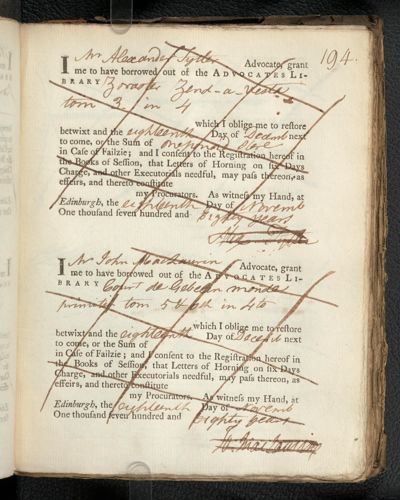 194.
I Mr Alexander Tytler Advocate, grant
me to have borrowed out of the ADVOCATES LI-
BRARY Zoroaster Zend-a-Vesta
tom 3 in 4
which I oblige me to restore
betwixt and the eighteenth Day of Decemb next
to come, or the Sum of one pound Ster
in Case of Failzie; and I consent to the Registration hereof in
the Books of Session, that Letters of Horning on six Days
Charge, and other Executorials needful, may pass thereon, as
effeirs, and thereto constitute
my Procurators. As witness my Hand, at
Edinburgh, the eighteenth Day of Novemb
One thousand seven hundred and Eighty years
Tytler
I Mr John MacLaurin Advocate, grant
me to have borrowed out of the ADVOCATES LI-
BRARY Court de Gebelin monde
primitif tom 5 & 6th in 4to
which I oblige me to restore
betwixt and the eighteenth Day of Decemb next
to come, or the Sum of
in Case of Failzie; and I consent to the Registration hereof in
the Books of Session, that Letters of Horning on six Days
Charge, and other Executorials needful, may pass thereon, as
effeirs, and thereto constitute
my Procurators. As witness my Hand, at
Edinburgh, the eighteenth Day of Novemb
One thousand seven hundred and Eighty years